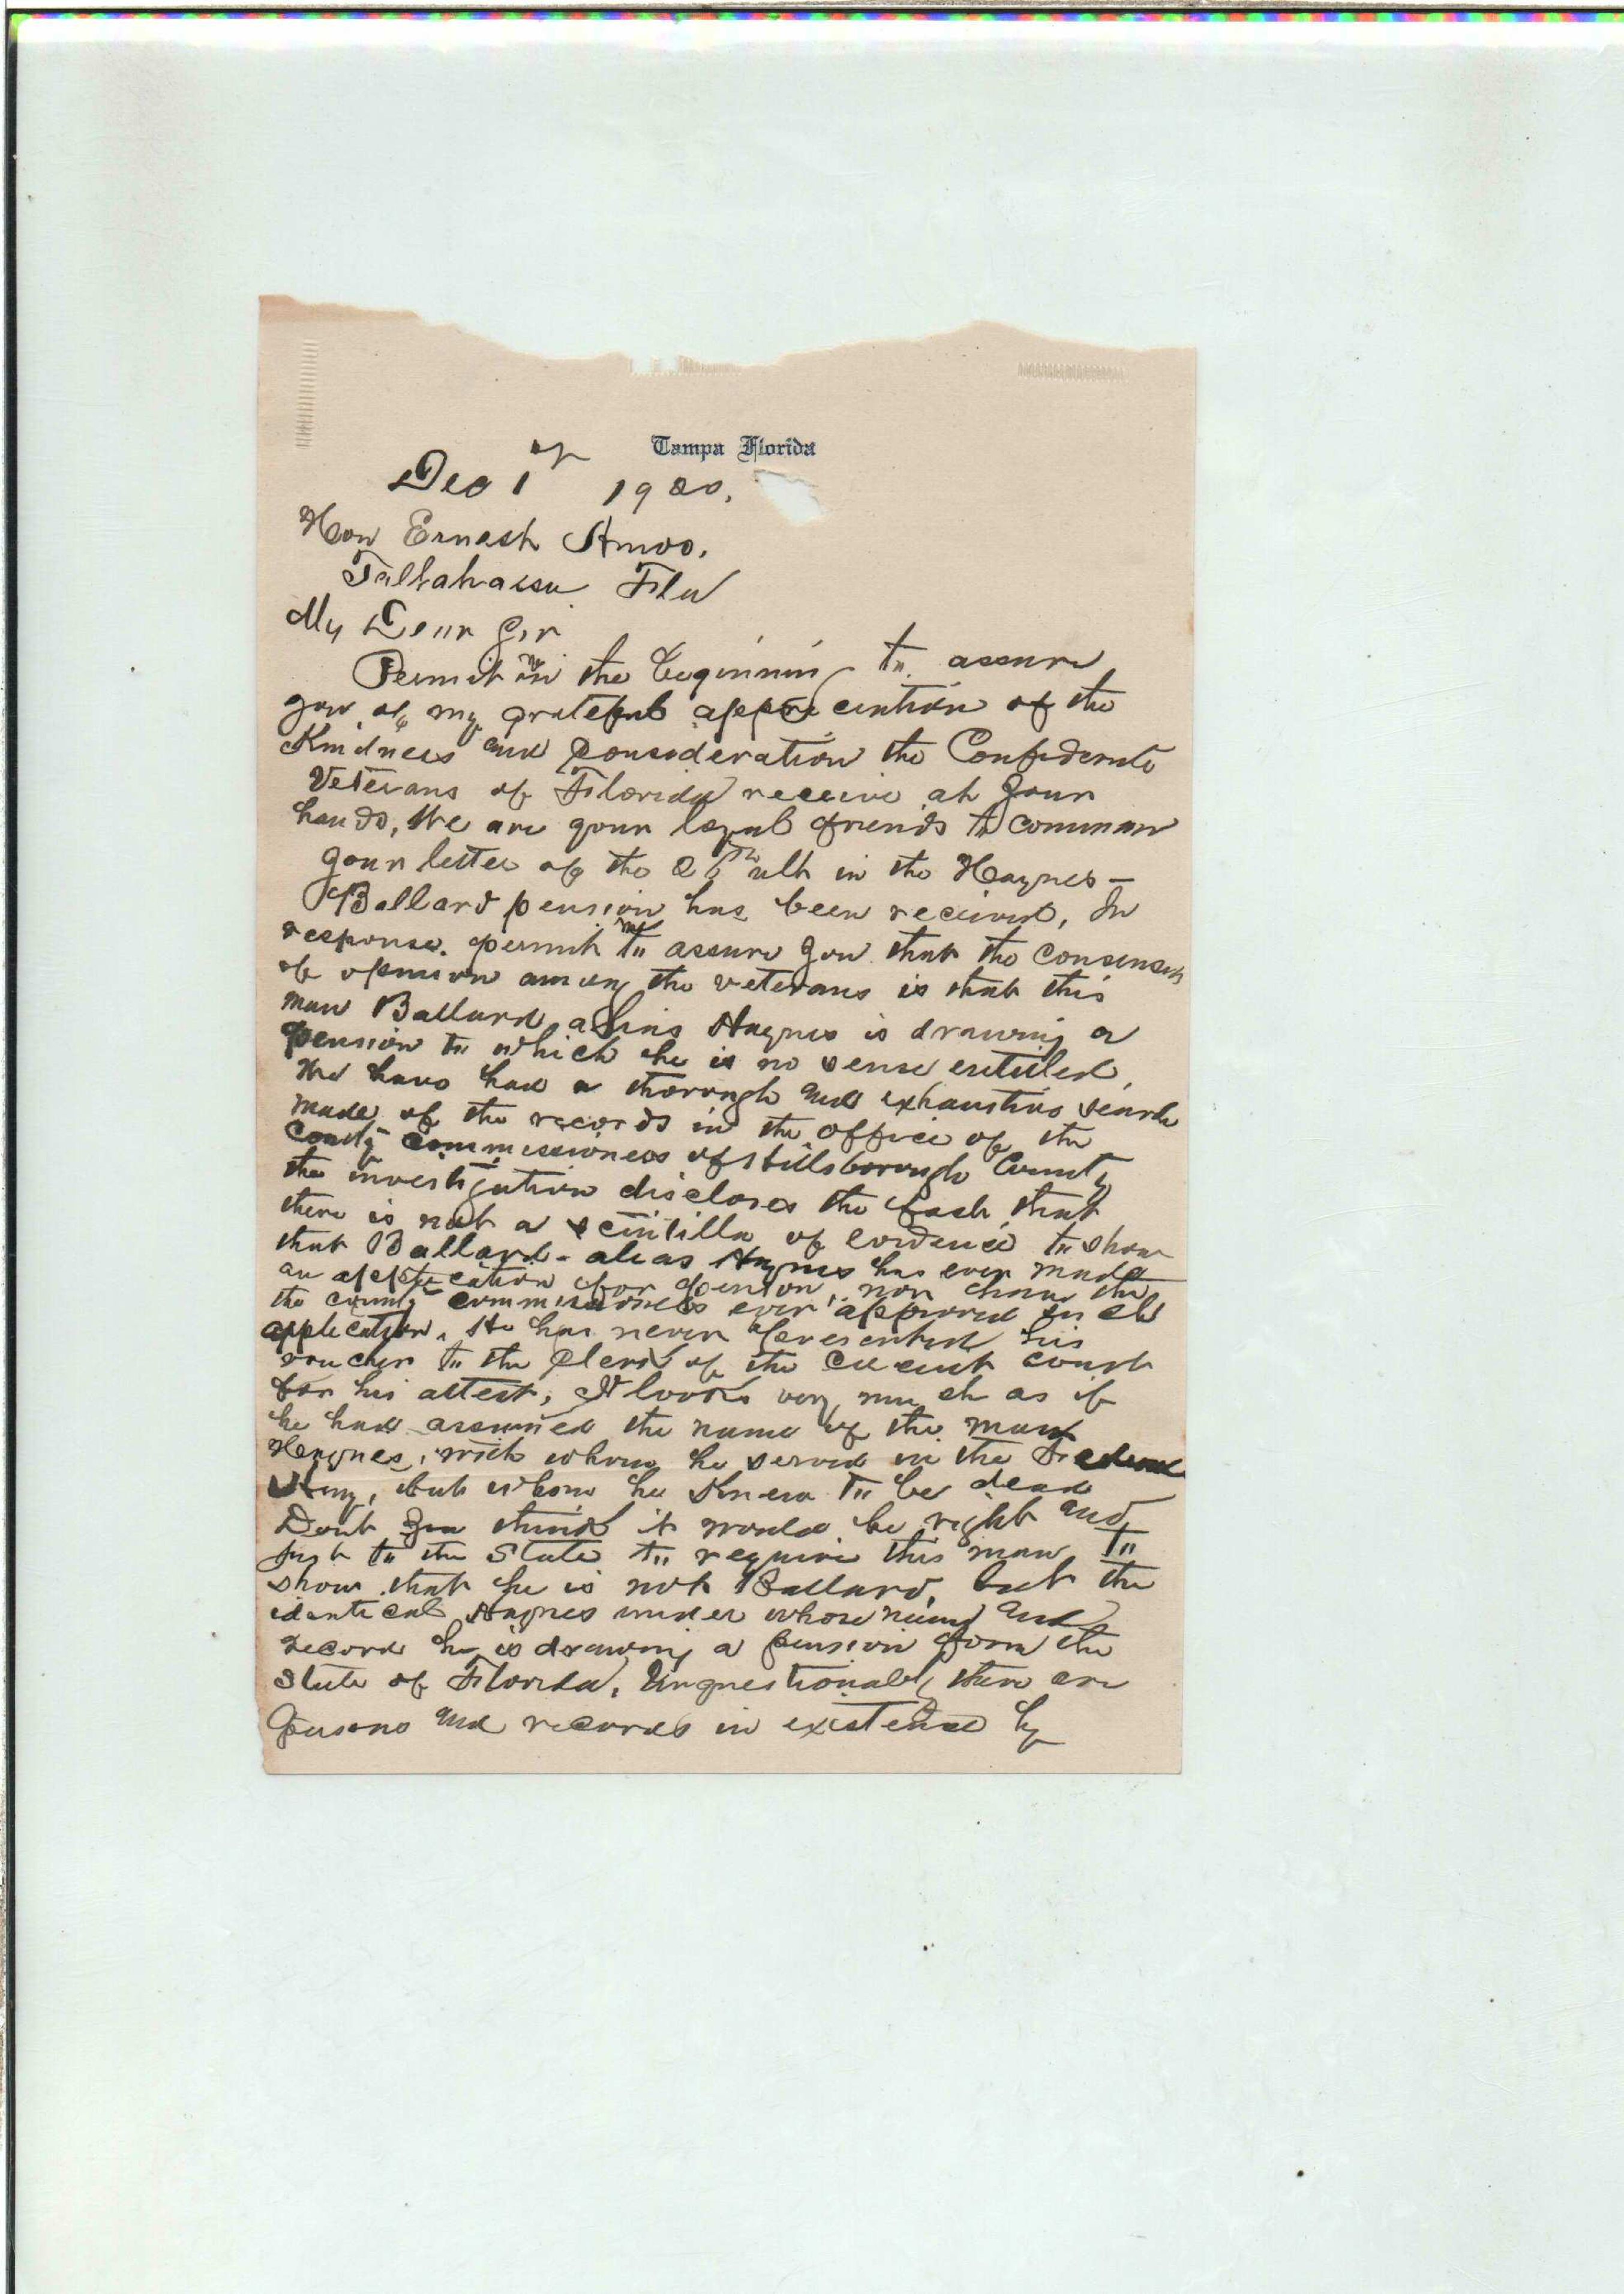 Tampa Florida
Dec 1st 1920.
Hon Ernest Amos.
Tallahassee Fla
My Dear Sir
Permit me in the beginning to assure
you of my grateful appreciation of the
Kindness and consideration the Confederate
Veterans of Florida receive at your
hands, We are your loyal friends to command
Your letter of the 26th ult in the Haynes-
Ballard pension has been received. In
response. permit me to assure you that the consensus
of opinion among the veterans is that this
man Ballard alias Haynes is drawing a
pension to which he is no sense entitled.
We have had a thorough and exhaustive search
made of the records in the office of the
County commissioners of Hillsborough County
the investigation discloses the fact that
there is not a scintilla of evidence to show
that Ballard - alias Haynes has ever made
an application for pension, nor the
the county commissioners ever approved such
application. He has never presented his
voucher to the Clerk of the Circuit court
for his attest, It looks very much as if
he had assumed the name of the man
Haynes, with whom he served in the Federal
Army, but whom he Knew to be dead
Dont you think it would be right and
Just to the State to require this man to
show that he is not Ballard, but the
identical Haynes under whose name and
record he is drawing a pension from the
State of Florida. Unquestionably there are
persons and records in existense by